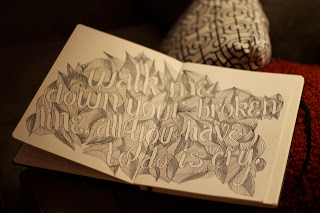 walk me
down your broken
line, all you have
to do is cry